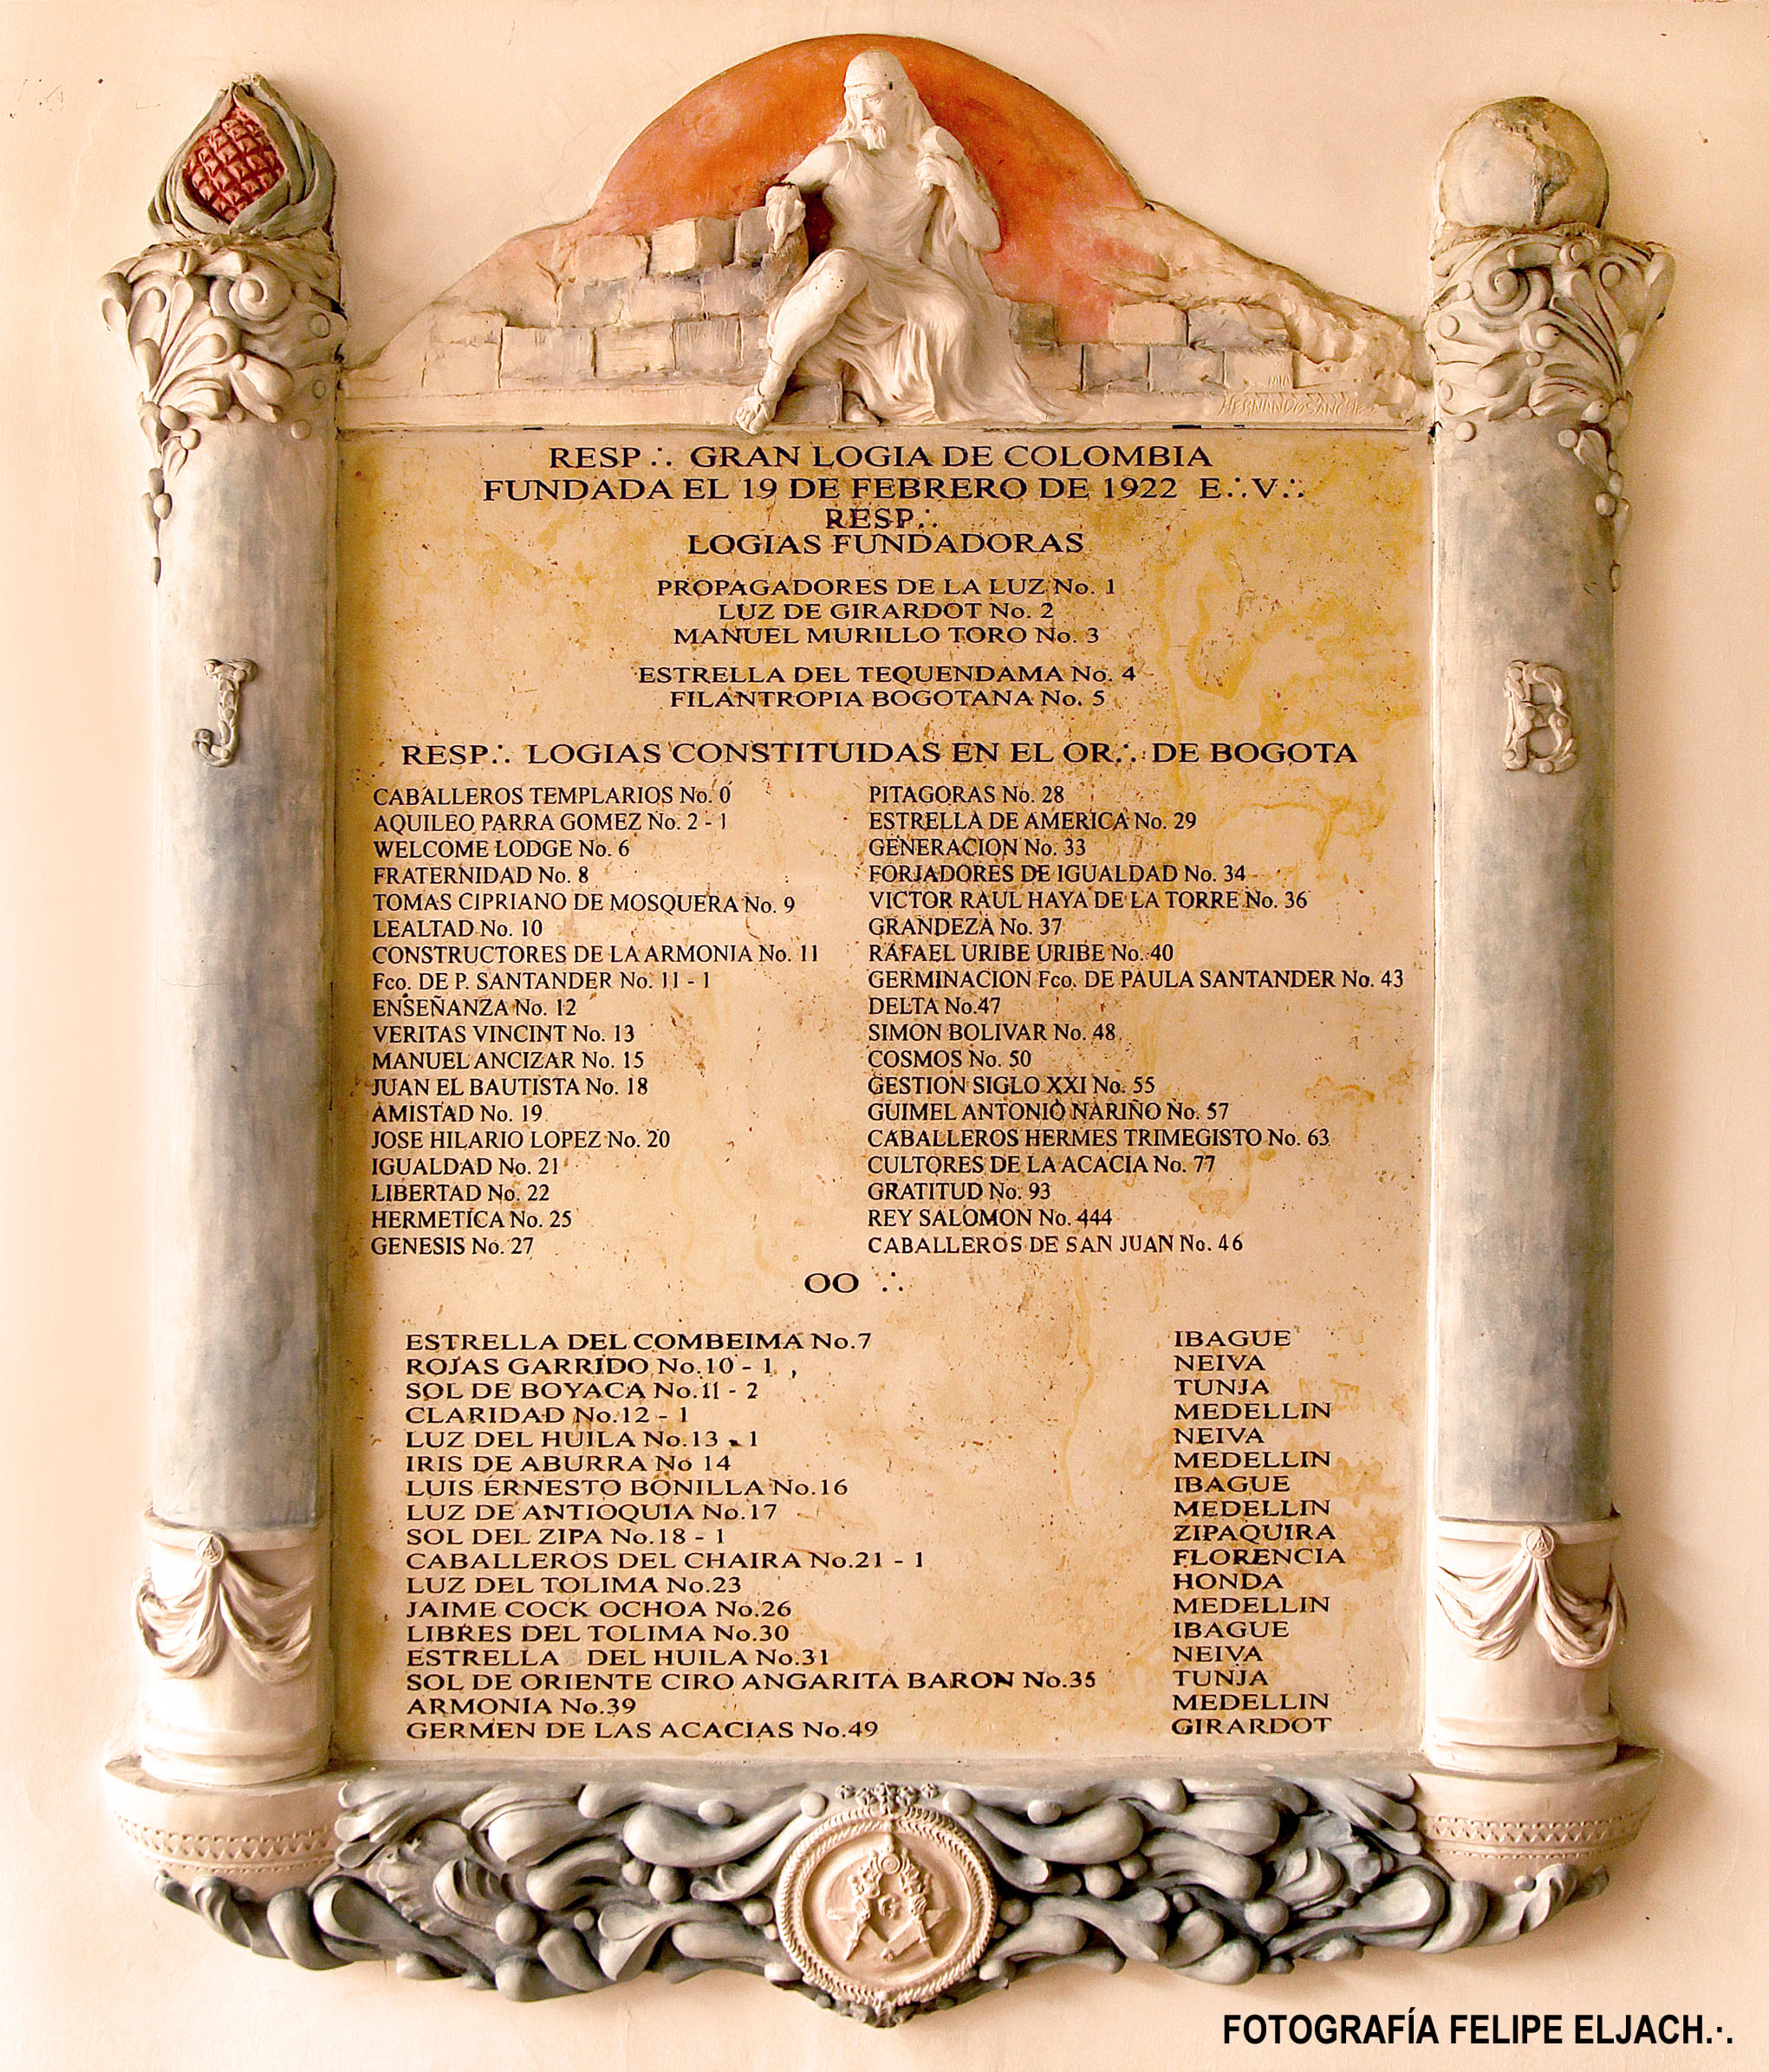 HERNANDO SANCHEZ
RESP∴ GRAN LOGIA DE COLOMBIA
FUNDADA EL 19 DE FEBRERO DE 1922 E∴V∴
RESP∴
LOGIAS FUNDADORAS
PROPAGADORES DE LA LUZ No. 1
LUZ DE GIRARDOT No. 2
MANUEL MURILLO TORO No. 3
ESTRELLA DEL TEQUENDAMA No. 4
FILANTROPIA BOGOTANA No. 5
J
B
RESP∴ LOGIAS CONSTITUIDAS EN EL OR∴ DE BOGOTA
CABALLEROS TEMPLARIOS No. 0
AQUILEO PARRA GOMEZ No. 2 - 1
WELCOME LODGE No. 6
FRATERNIDAD No. 8
TOMAS CIPRIANO DE MOSQUERA No. 9
LEALTAD No. 10
CONSTRUCTORES DE LA ARMONIA No. 11
Fco. DE P. SANTANDER No. 11 - 1
ENSEÑANZA No. 12
VERITAS VINCINT No. 13
MANUEL ANCIZAR No. 15
JUAN EL BAUTISTA No. 18
AMISTAD No. 19
JOSE HILARIO LOPEZ No. 20
IGUALDAD No. 21
LIBERTAD No. 22
HERMETICA No. 25
GENESIS No. 27
PITAGORAS No. 28
ESTRELLA DE AMERICA No. 29
GENERACION No. 33
FORJADORES DE IGUALDAD No. 34
VICTOR RAUL HAYA DE LA TORRE No. 36
GRANDEZA No. 37
RAFAEL URIBE URIBE No. 40
GERMINACION Fco. DE PAULA SANTANDER No. 43
DELTA No.47
SIMON BOLIVAR No. 48
COSMOS No. 50
GESTION SIGLO XXI No. 55
GUIMEL ANTONIO NARIÑO No. 57
CABALLEROS HERMES TRIMEGISTO No. 63
CULTORES DE LA ACACIA No. 77
GRATITUD No. 93
REY SALOMON No. 444
CABALLEROS DE SAN JUAN No. 46
OO ∴
ESTRELLA DEL COMBEIMA No.7 IBAGUE
ROJAS GARRIDO No.10 - 1 NEIVA
SOL DE BOYACA No.11 - 2 TUNJA
CLARIDAD No.12 - 1 MEDELLIN
LUZ DEL HUILA No.13 - 1 NEIVA
IRIS DE ABURRA No 14 MEDELLIN
LUIS ERNESTO BONILLA No.16 IBAGUE
LUZ DE ANTIOQUIA No.17 MEDELLIN
SOL DEL ZIPA No.18 - 1 ZIPAQUIRA
CABALLEROS DEL CHAIRA No.21 - 1 FLORENCIA
LUZ DEL TOLIMA No.23 HONDA
JAIME COCK OCHOA No.26 MEDELLIN
LIBRES DEL TOLIMA No.30 IBAGUE
ESTRELLA DEL HUILA No.31 NEIVA
SOL DE ORIENTE CIRO ANGARITA BARON No.35 TUNJA
ARMONIA No.39 MEDELLIN
GERMEN DE LAS ACACIAS No.49 GIRARDOT
G
FOTOGRAFÍA FELIPE ELJACH.·.